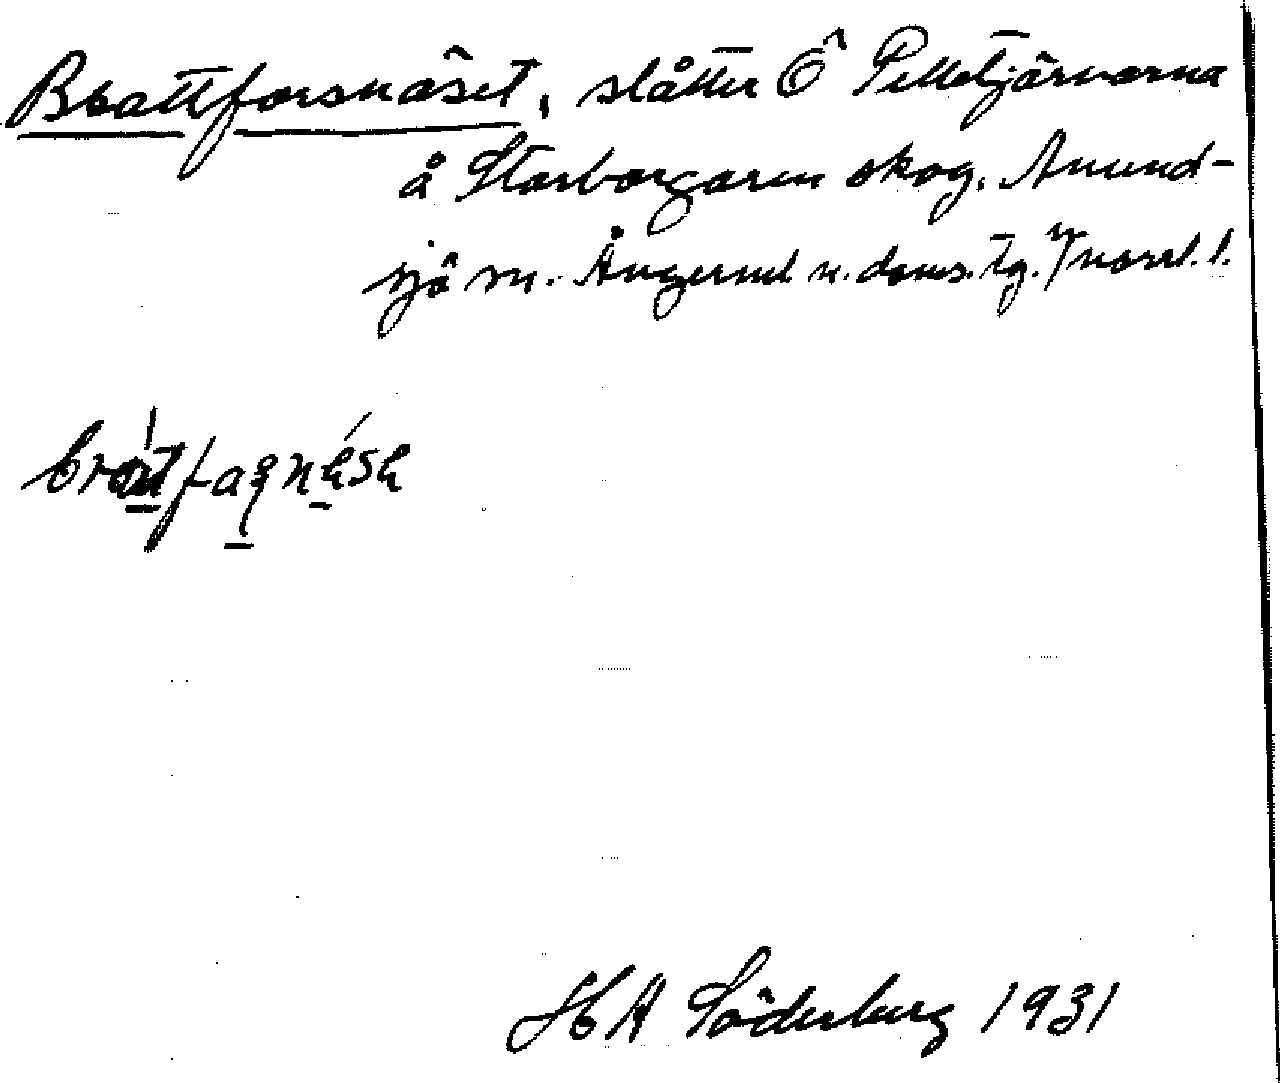 Brattforsnäset, slåtter Ö Pelletjärnarna
å Storborgaren skog. Anund-
sjö sn. Ångerml n. doms. tg. V norrl. l.
HA Söderberg 1931